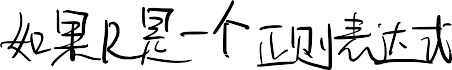 如果R是一个正则表达式